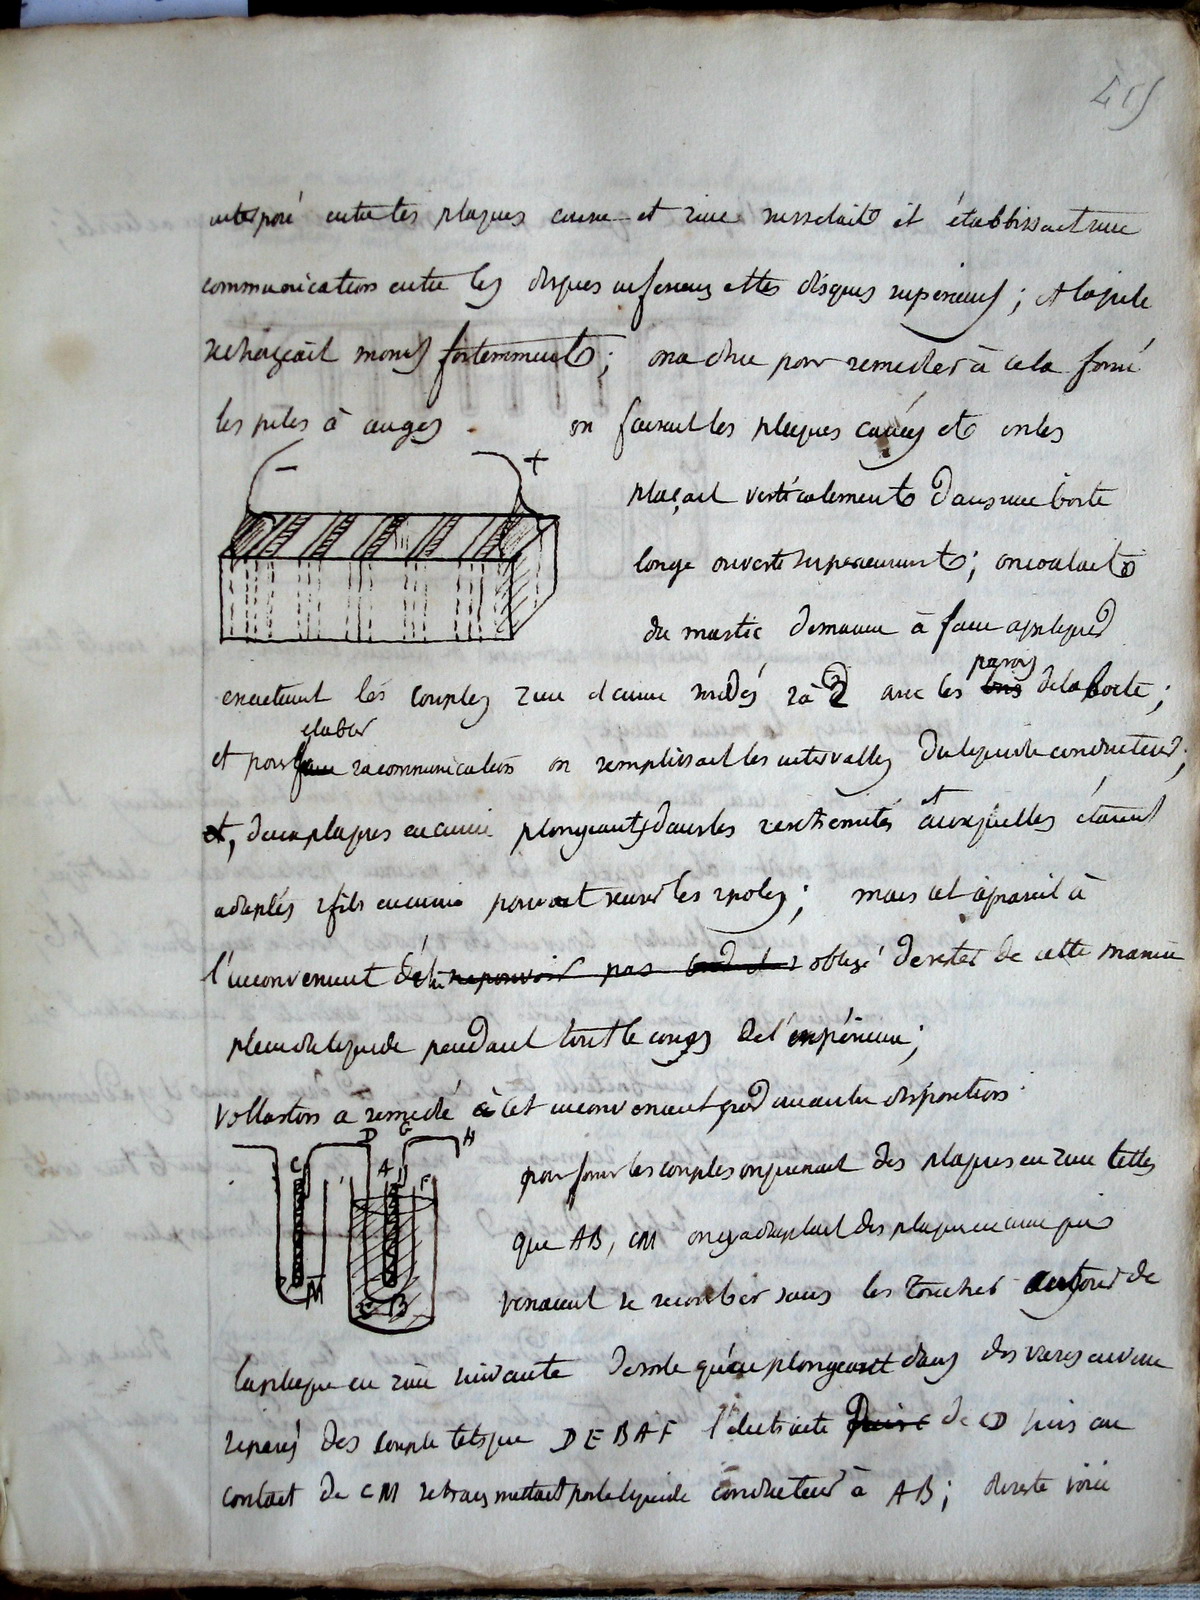 415
interposé entre les plaques cuivre et zinc ruisselait et établissait une
communication entre les disques inferieurs et les disques superieurs ; et la pile
se chargeait moins fortemment ; on a donc pour remedier à cela formé
les piles à auges . on faisait les plaques carrées et on les
- +
plaçait verticalement dans une boite
longe ouverte superieurement ; on coulait
du mastic de maniere à faire appliquer
exactement les couples zinc et cuivre soudés 2 à 2 avec les parois de la boite ;
et pour etablir la communication on remplissait les intervalles du liquide conducteur ;
et, deux plaques en cuivre plongeant dans les 2 extremités et auxquelles étaient
adaptés 2 fils en cuivre pouvait reunir les 2 poles ; mais cet apareil à
l'inconvenient d'être ne pouvoir pas obligé de rester de cette maniere
plein de liquide pendant tout le cours de l'expérience ;
Vollaston a remedié à cet inconvenient par une autre disposition .
D G H
C A F
M E B
pour former les couples on prenait des plaques en zinc telles
que AB, CM on y adaptait des plaques en cuivre qui
venaient se recourber sans les toucher autour de
la plaque en zinc suivante de sorte qu'en plongeant dans des vases en verre
separés des couple tels que DEBAF l'electricité de CD puis au
contact de CM se transmettait par le liquide conducteur à AB ; du reste voici